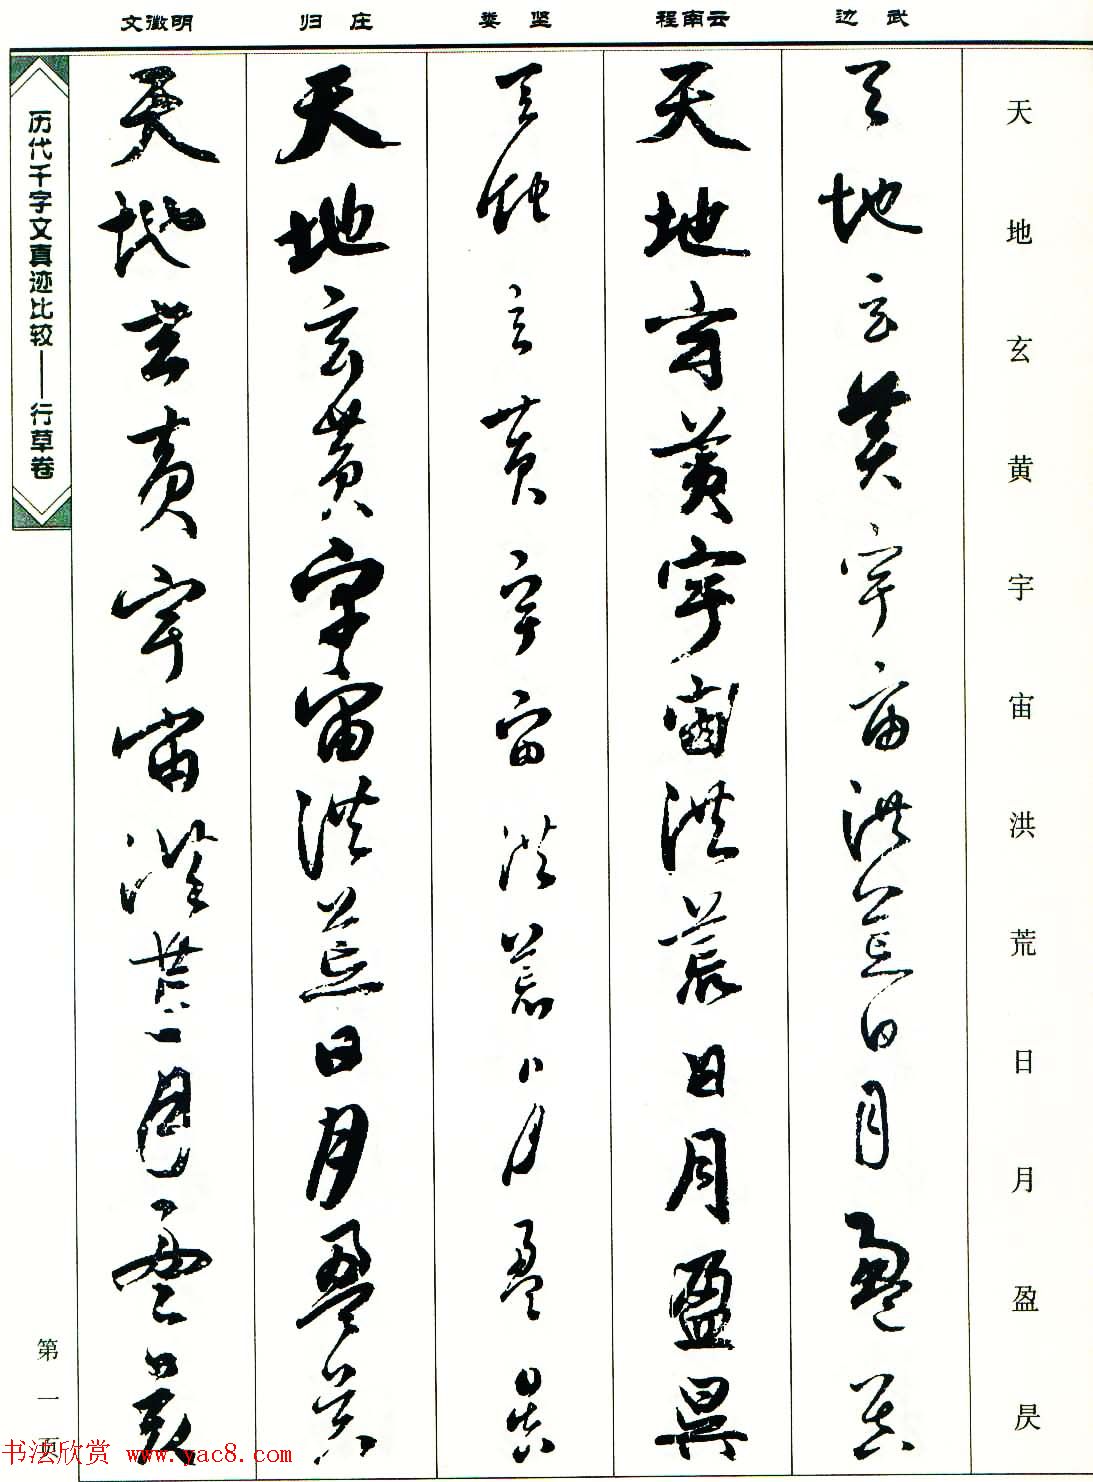 文徵明 归庄 娄坚 程南云 边武
天地玄黄宇宙洪荒日月盈昃
天地玄黄宇宙洪荒日月盈昃
天地玄黄宇宙洪荒日月盈昃
天地玄黄宇宙洪荒日月盈昃
天地玄黄宇宙洪荒日月盈昃
天地玄黄宇宙洪荒日月盈昃
历代千字文真迹比较——行草卷
第一页
书法欣赏 www.yac8.com